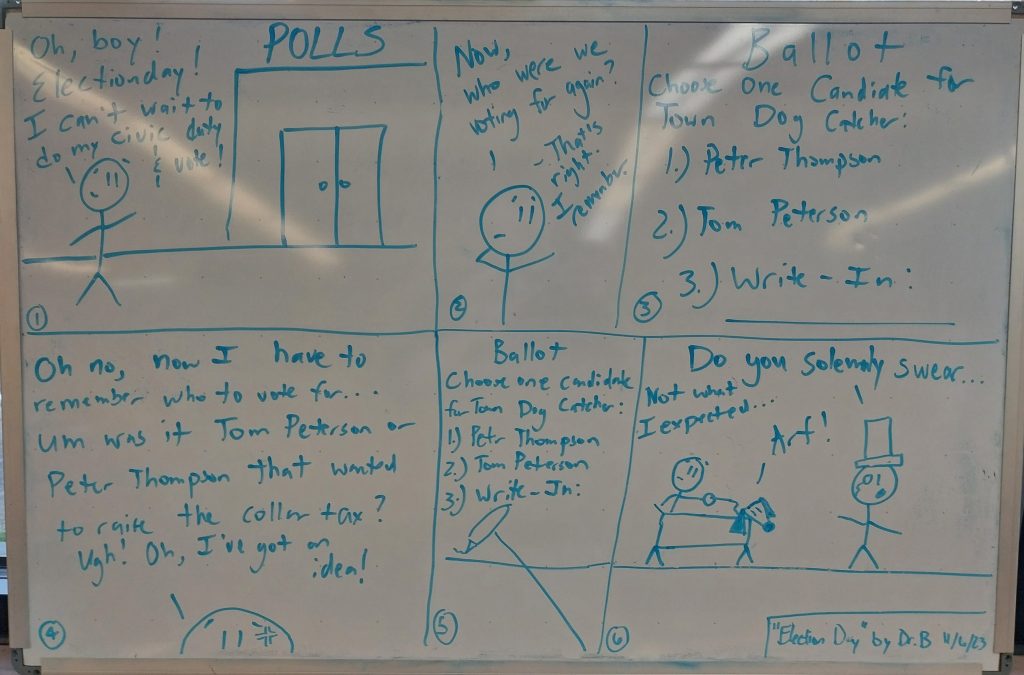 Oh, boy!
Electionday!
I can't wait to
do my civic duty
& vote!
POLLS
1
Now,
who were we
voting for again?
- That's
right.
I
remember.
2
Ballot
Choose One Candiate for
Town Dog Catcher:
1.) Peter Thompson
2.) Tom Peterson
3.) Write-In:
3
Oh no, now I have to
remember who to vote for...
um was it Tom Peterson or
Peter Thompson that wanted
to raise the collar tax?
Ugh! Oh, I've got an
idea!
4
Ballot
Choose one candidate
for Town Dog Catcher:
1.) Petr Thompson
2.) Tom Peterson
3.) Write-In:
5
Do you solemnly swear...
Not what
I expected...
Arf!
6
"Election Day" by Dr. B 11/6/23